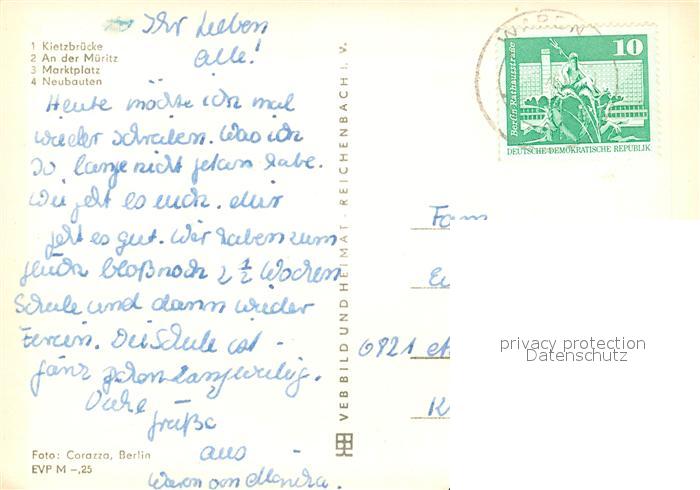 Ihr Lieben
alle!
1 Kietzbrücke
2 An der Müritz
3 Marktplatz
4 Neubauten
Heute möchte ich mal
wieder schreiben. Was ich
so lange nicht getan habe.
Wie geht es euch. Mir
geht es gut. Wir haben zum
Glück bloß noch 2 1/2 Wochen
Schule und dann wieder
Ferien. Die Schule ist
ganz schon langweilig.
Viele
Grüße
aus
Waren von Monika.
Foto: Corazza, Berlin
EVP M -,25
VEB BILD UND HEIMAT · REICHENBACH I. V.
WAREN
10
Berlin Rathausstraße
DEUTSCHE DEMOKRATISCHE REPUBLIK
Fam
0821
K
privacy protection
Datenschutz